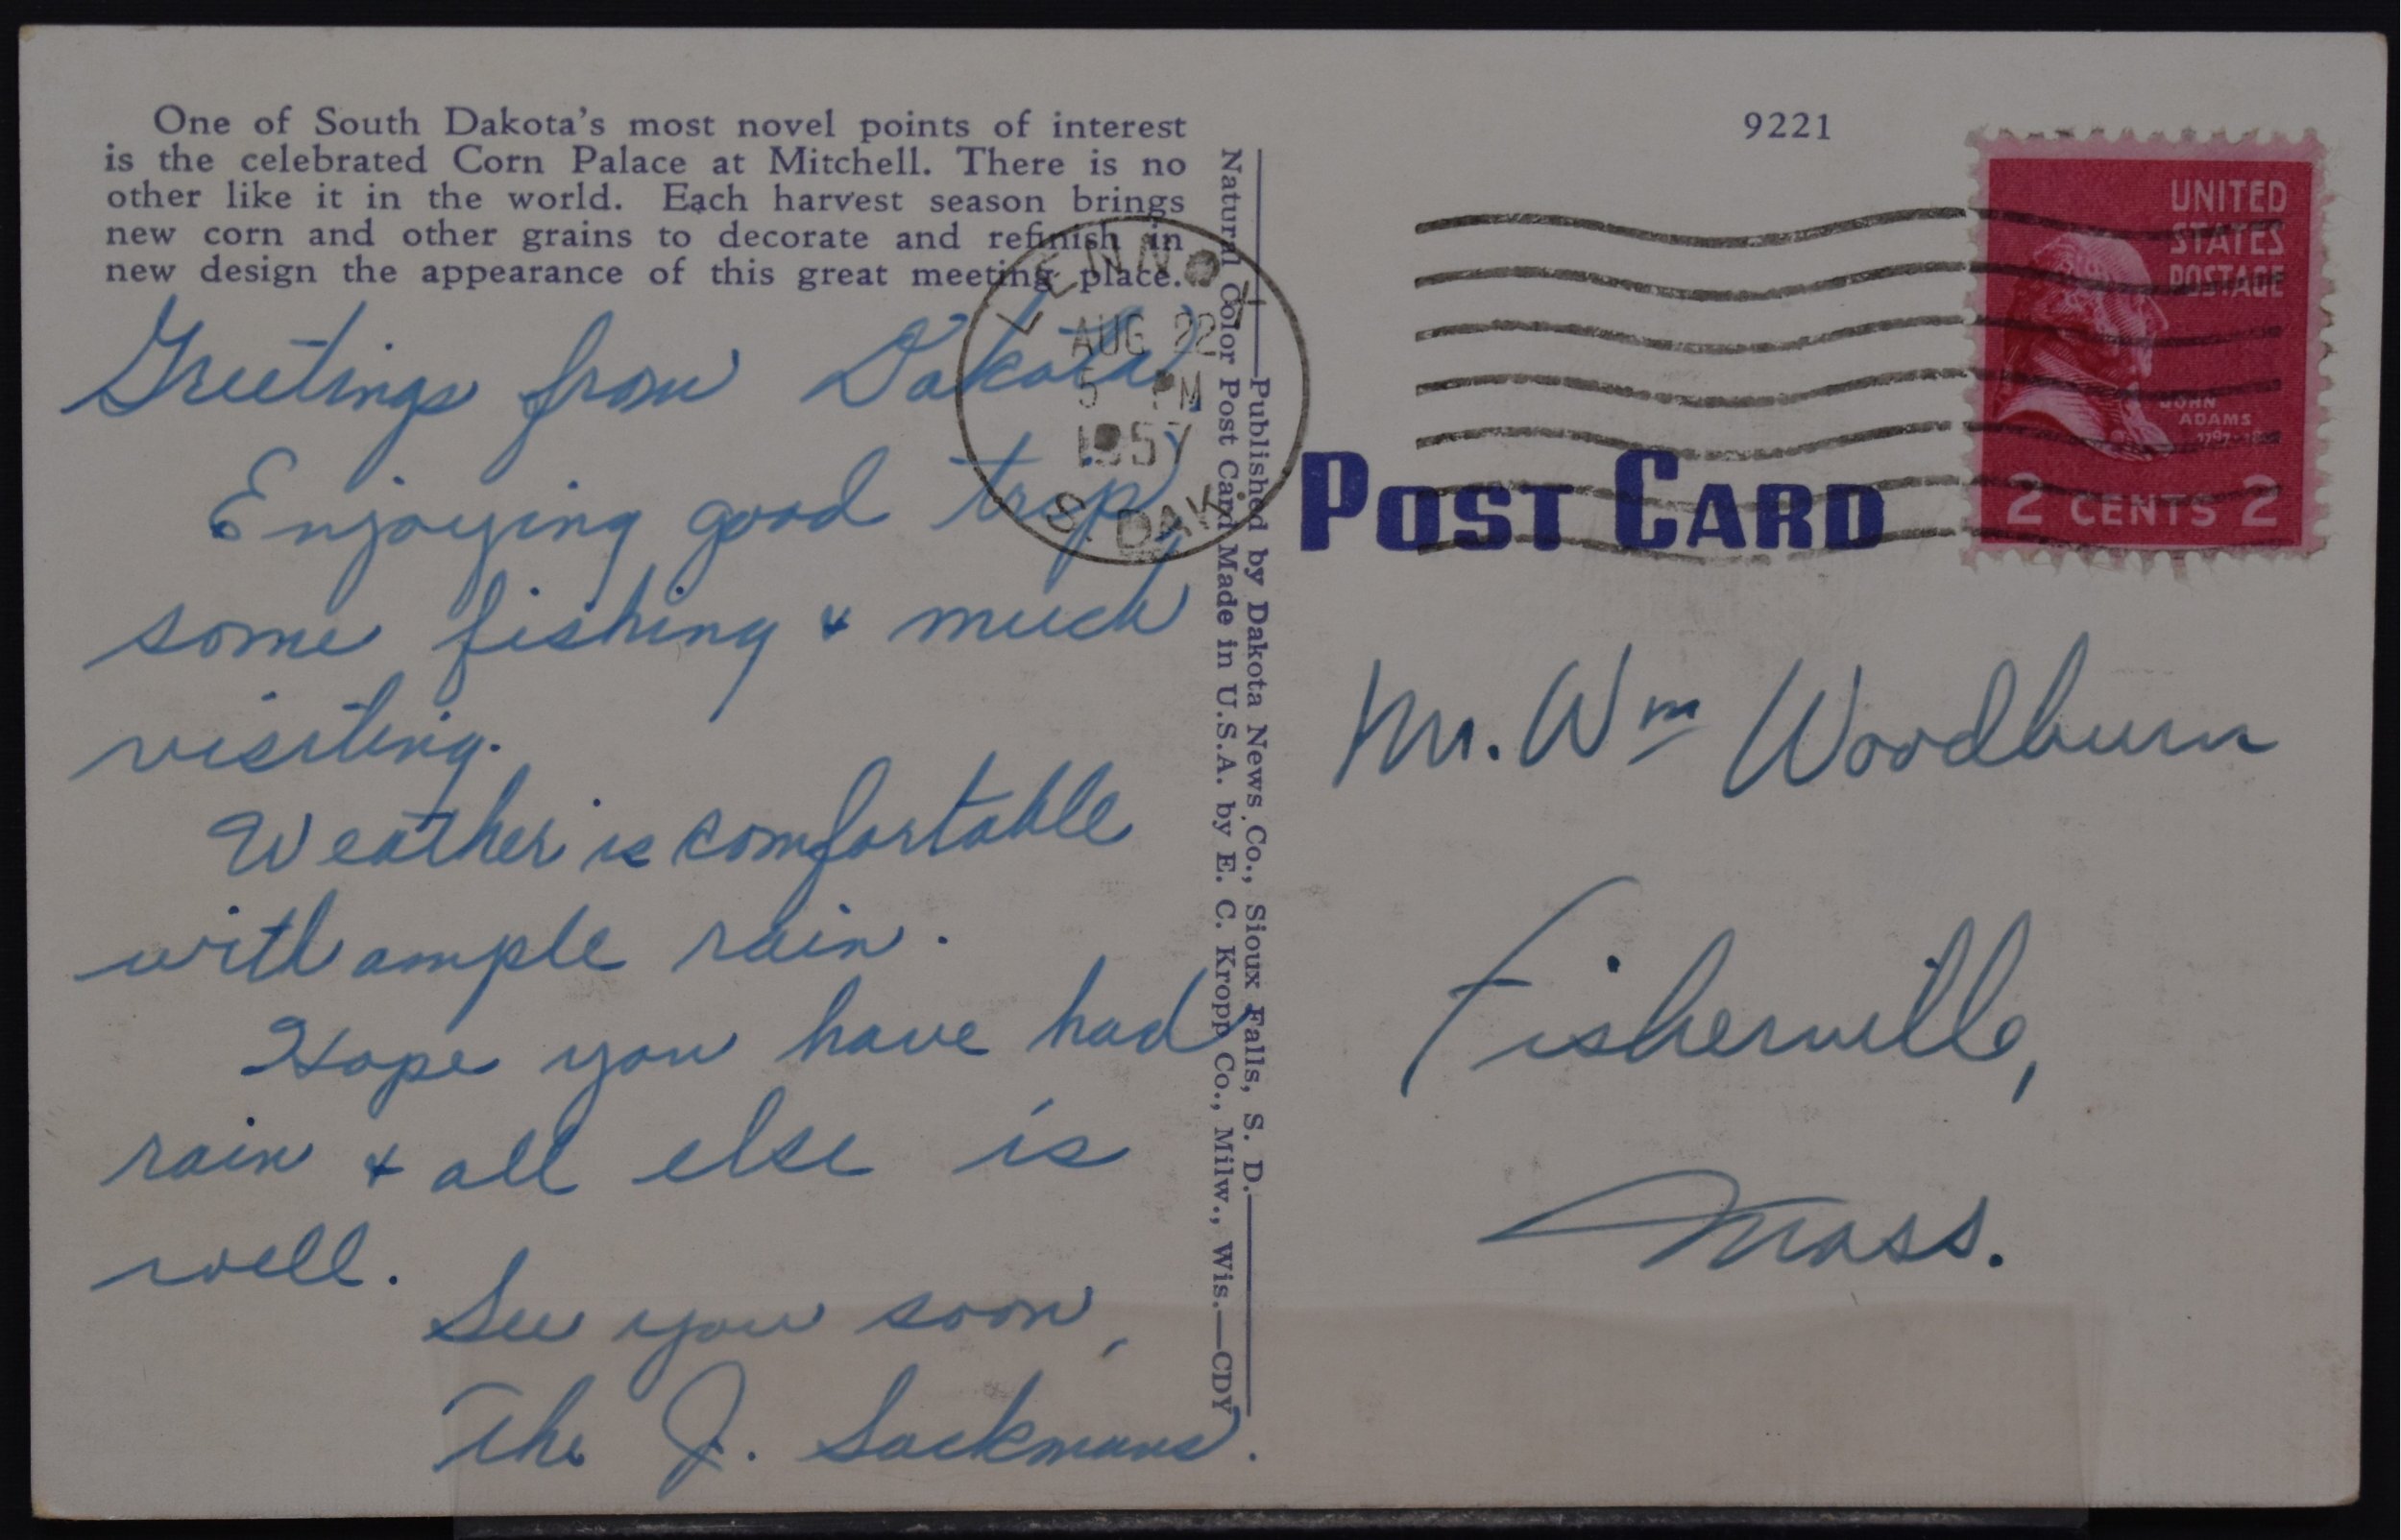 One of South Dakota's most novel points of interest
is the celebrated Corn Palace at Mitchell. There is no
other like it in the world. Each harvest season brings
new corn and other grains to decorate and refinish in
new design the appearance of this great meeting place.
Greetings from Dakota,
Enjoying good trip,
some fishing & much
visiting.
Weather is comfortable
with ample rain.
Hope you have had
rain & all else is
well.
See you soon,
The J. Sackmans.
LENNOX
AUG 22
5 PM
1957
S. DAK.
Published by Dakota News Co., Sioux Falls, S. D.
Natural Color Post Card Made in U.S.A. by E. C. Kropp Co., Milw., Wis.—CDY
9221
POST CARD
UNITED
STATES
POSTAGE
JOHN
ADAMS
2 CENTS 2
Mr. Wm Woodburn
Fisherville,
Mass.